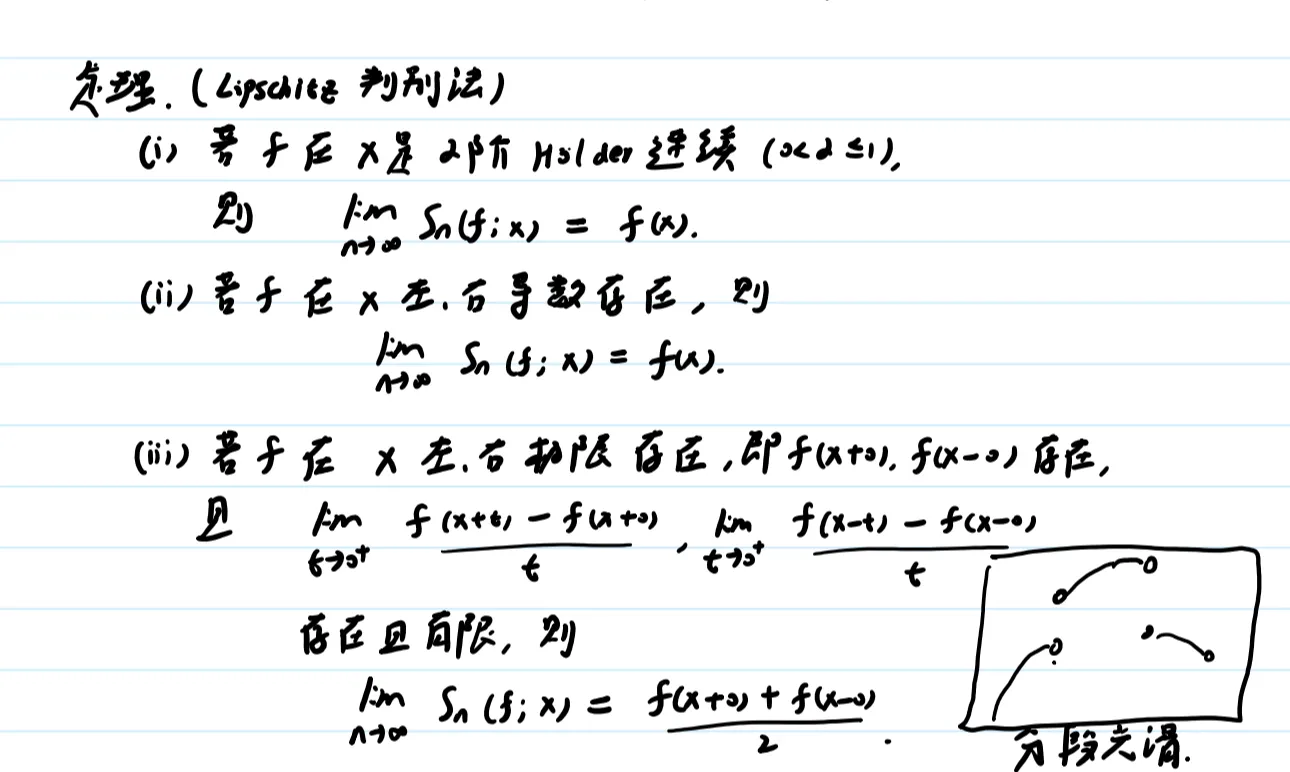 定理.(Lipschitz 判别法)
(i) 若 f 在 x 是 α阶 Hölder 连续 (0<α≤1),
则 lim_{n→∞} Sn(f;x) = f(x).
(ii) 若 f 在 x 左.右导数存在,则
lim_{n→∞} Sn(f;x) = f(x).
(iii) 若 f 在 x 左.右极限存在,即 f(x+0), f(x-0) 存在,
且 lim_{t→0⁺} \frac{f(x+t) - f(x+0)}{t}, lim_{t→0⁺} \frac{f(x-t) - f(x-0)}{t}
存在且有限,则
lim_{n→∞} Sn(f;x) = \frac{f(x+0) + f(x-0)}{2}.
分段光滑.